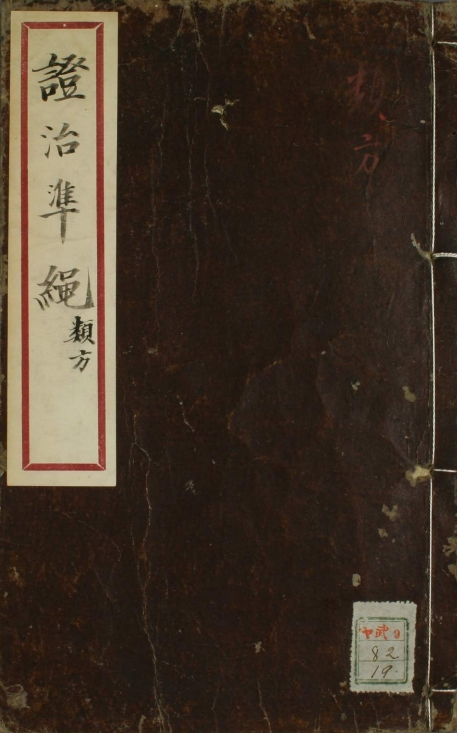 類方
證治準繩
類方
ヤ貮9
82
19